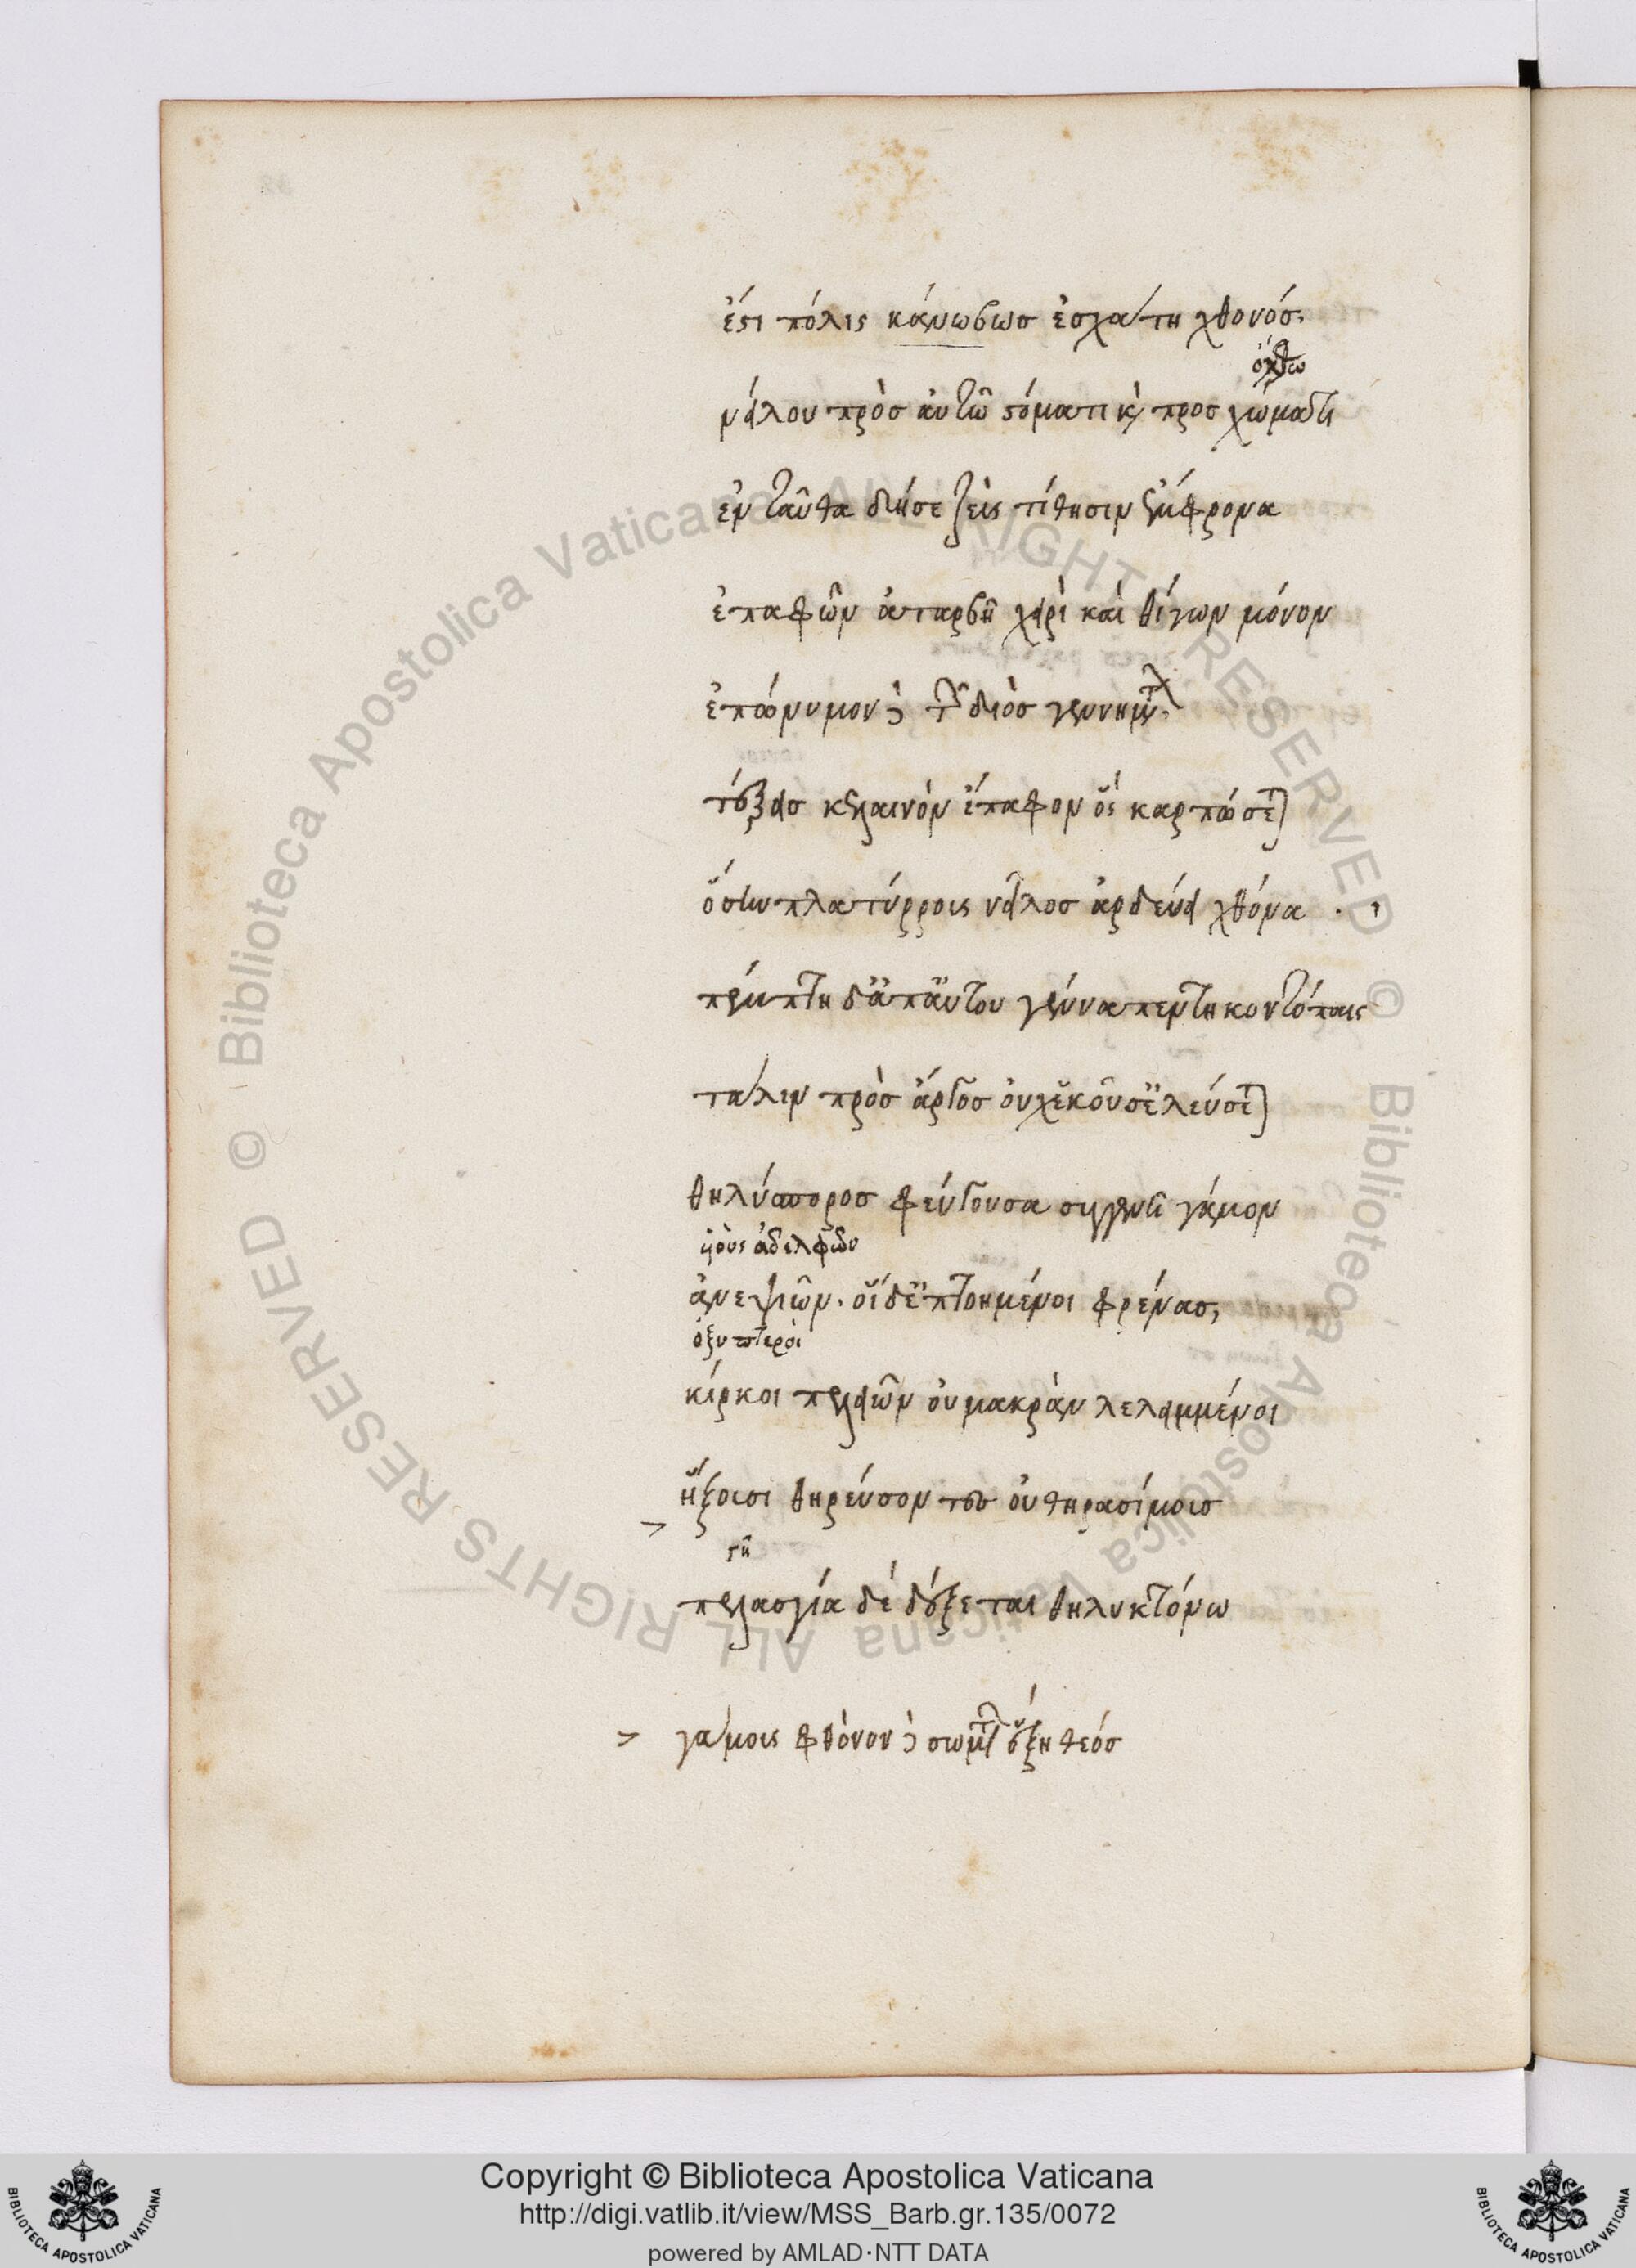 ἔστι πόλις κάνωβωσ ἐσχάτη χθονόσ.
ὄχθω
νείλου πρὸσ ἀυτῶ στόματι κὶ προσ χώματι
ἐνταῦθα δήσε ζεὺς τίθησιν ἔμφρονα
ἐπαφῶν ἀταρβῆ χειρὶ καὶ θίγων μόνον
ἐπώνυμον δὲ τῶν διὸσ γεννημάτων
τέξεισ κελαινὸν ἔπαφον ὃς καρπώσεται
ὅσην πλατύρροις νεῖλοσ ἀρδεύει χθόνα
πέμπτη δ᾽ ἀπ᾽ ἀυτου γέννα πεντηκοντόπαις
πάλιν πρὸσ ἄργοσ ὀυχ ἑκοῦσ᾽ ἐλεύσεται
θηλύσποροσ φεύγουσα συγγενῆ γάμον
ὑιοὺς ἀδελφῶν
ἀνεψιῶν. ὅι δ᾽ ἐπτοημένοι φρένασ,
ὀξυπτεροι
κίρκοι πελειῶν ὀυ μακρὰν λελειμμένοι
ἥξουσι θηρεύσον τεσ ὀυ θηρασίμουσ
γῆ
πελασγία δὲ δέξεται θηλυκτόνω
γάμους φθόνον δὲ σωμάτων ἕξη θεόσ
Copyright © Biblioteca Apostolica Vaticana
http://digi.vatlib.it/view/MSS_Barb.gr.135/0072
powered by AMLAD·NTT DATA
BIBLIOTECA APOSTOLICA VATICANA
BIBLIOTECA APOSTOLICA VATICANA
© Biblioteca Apostolica Vaticana ALL RIGHTS RESERVED © Biblioteca Apostolica Vaticana ALL RIGHTS RESERVED